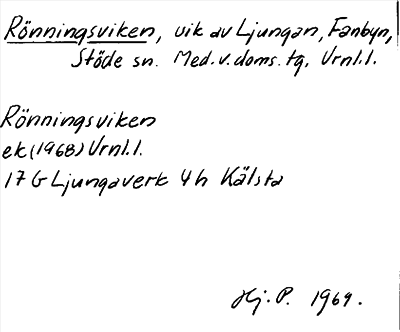 Rönningsviken, vik av Ljungan, Fanbyn,
Stöde sn. Med. v. doms. tg. Vrnl. l.
Rönningsviken
ek (1968) Vrnl. l.
17 G Ljungaverk 4h Kälsta
Hj. P. 1969.